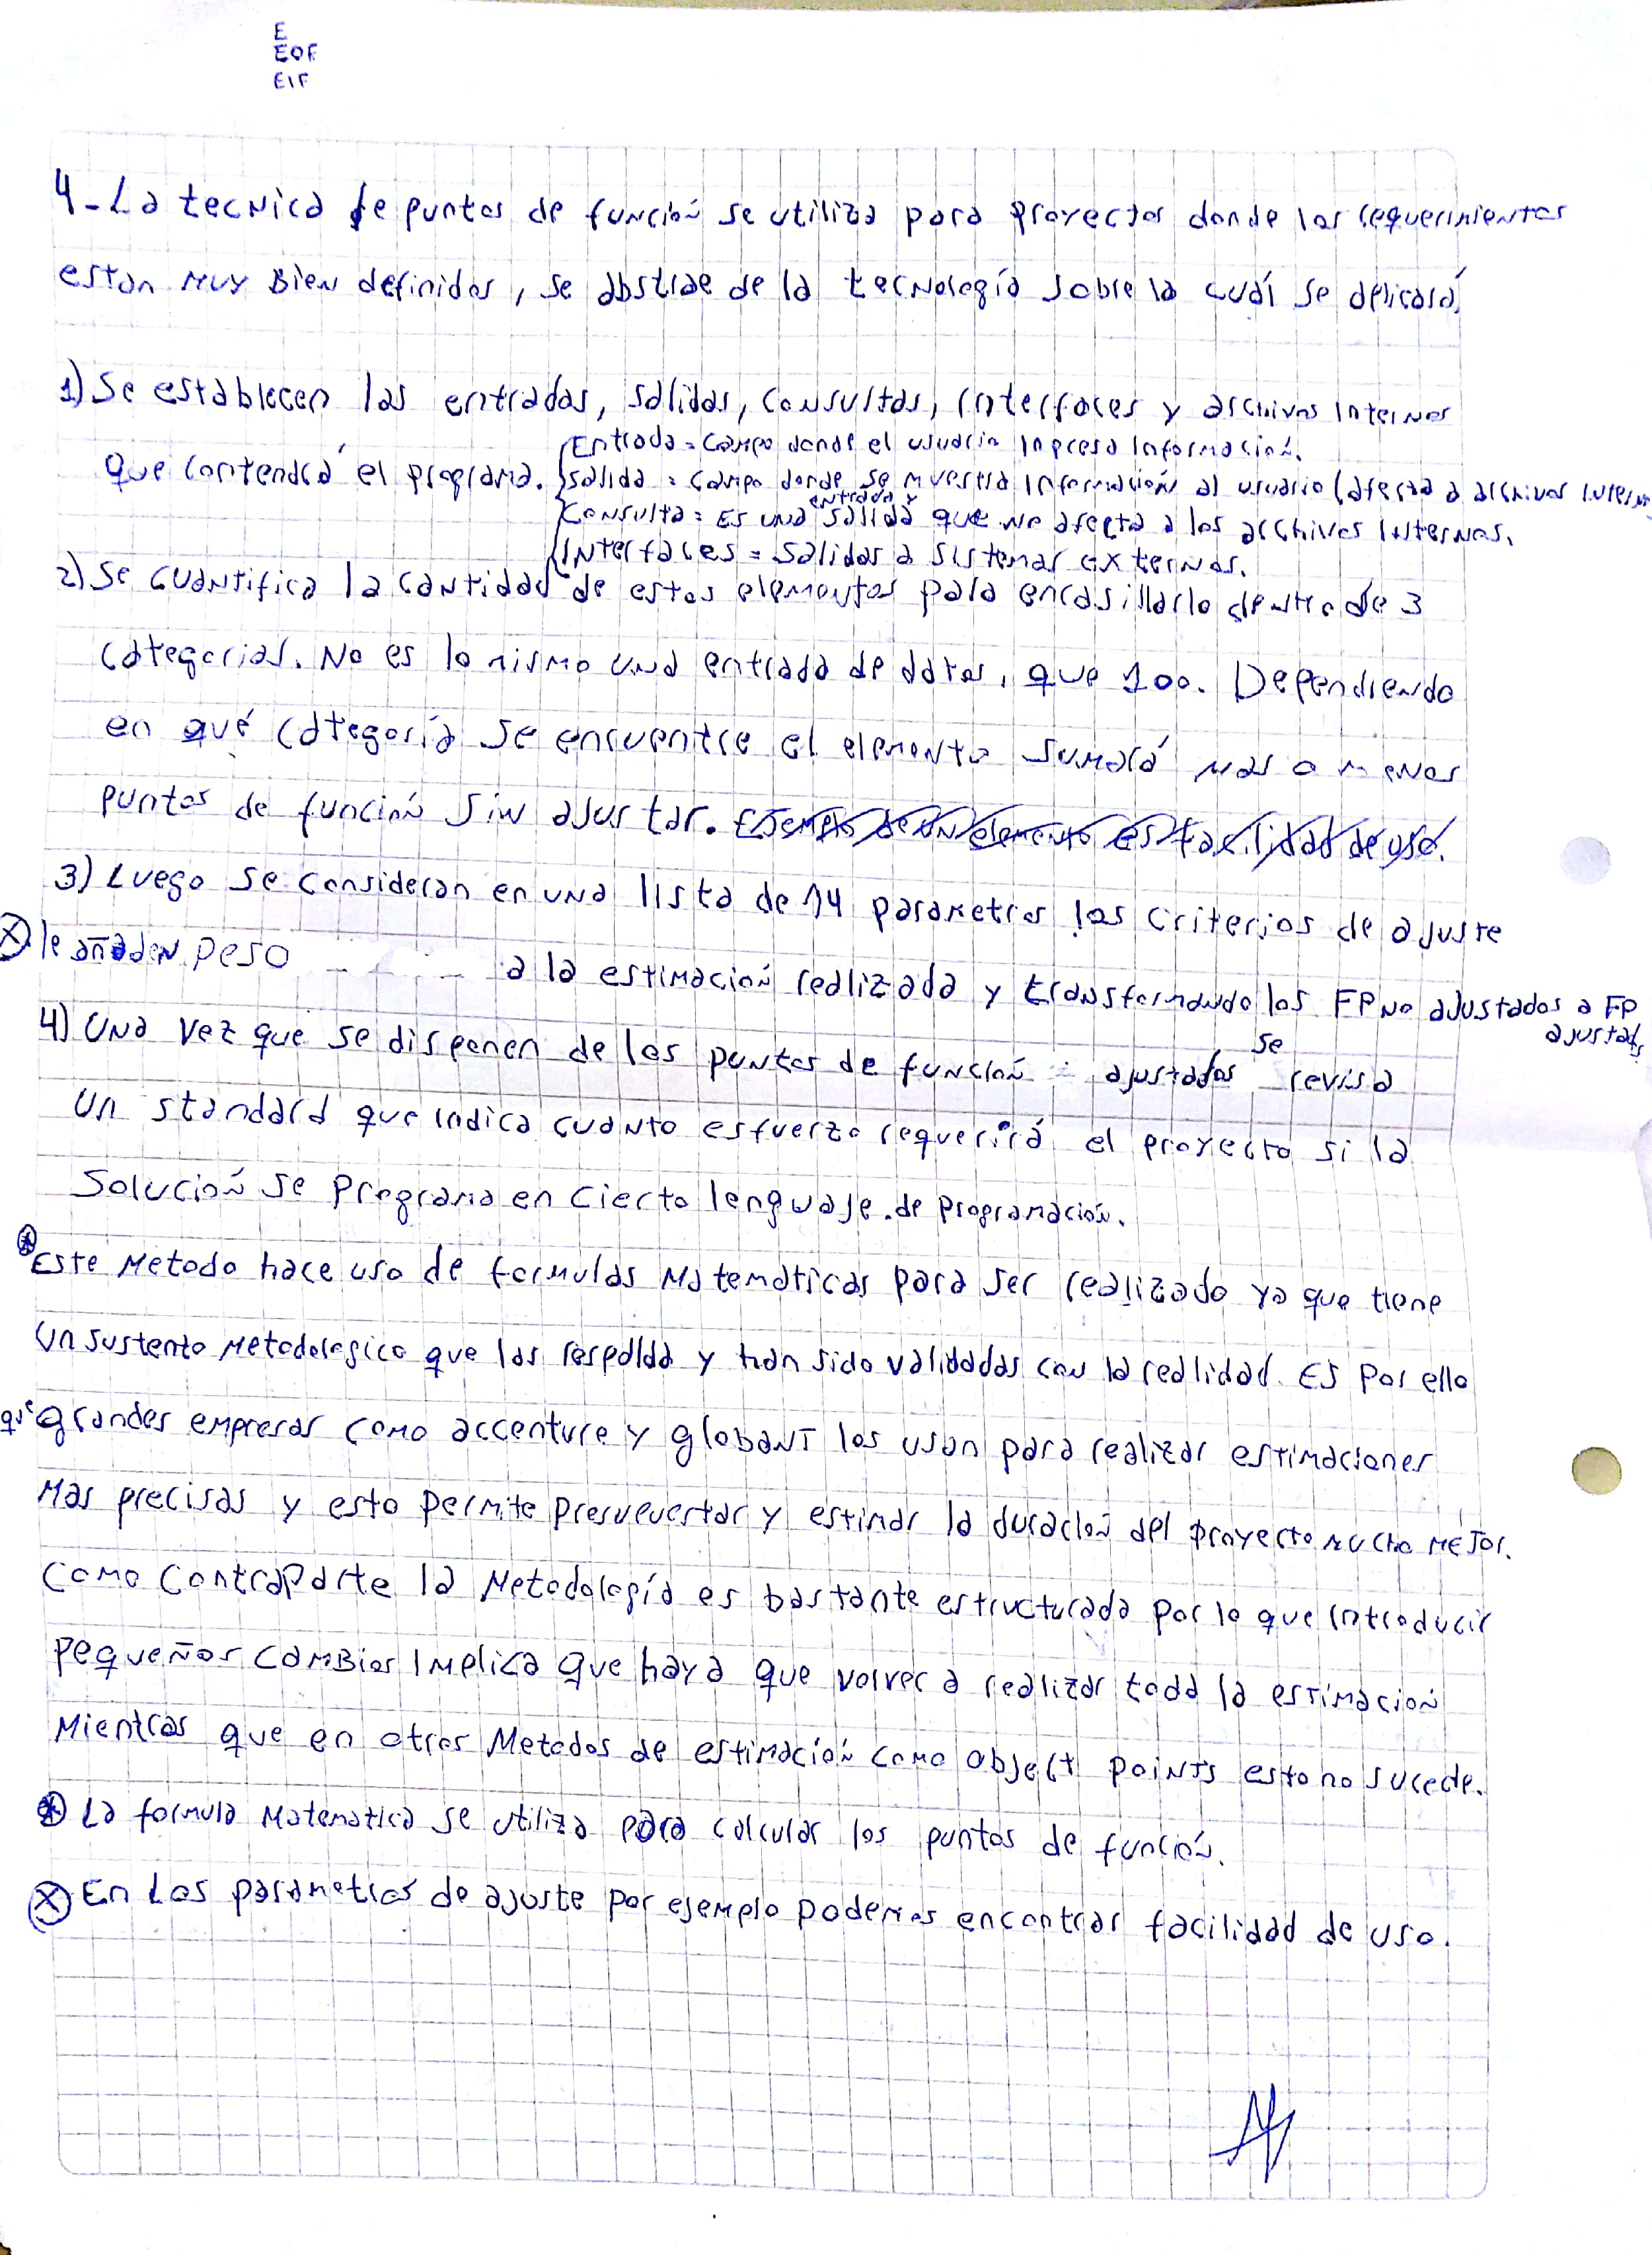 E
EOF
EIF
4-La tecnica de puntos de función se utiliza para proyectos donde los requerimientos
estan muy bien definidos, se abstrae de la tecnología sobre la cuál se aplicará.
1) Se establecen las entradas, salidas, consultas, interfaces y archivos internos
Entrada = Campo donde el usuario ingresa información.
que contendrá el programa. Salida = Campo donde se muestra información al usuario (afecta a archivos internos
entrada y
Consulta = Es una salida que no afecta a los archivos internos.
Interfaces = Salidas a sistemas externos.
2) Se cuantifica la cantidad de estos elementos para encasillarlo dentro de 3
categorias. No es lo mismo una entrada de datos, que 100. Dependiendo
en qué categoría se encuentre el elemento sumará mas o menos
puntos de función sin ajustar. Ejemplo de un elemento es facilidad de uso.
3) Luego se consideran en una lista de 14 parametros los criterios de ajuste
le añaden peso a la estimación realizada y transformando los FP no ajustados a FP
ajustads
4) Una vez que se disponen de los puntos de función ajustados se revisa
un standard que indica cuanto esfuerzo requerirá el proyecto si la
solución se programa en cierto lenguaje de programación.
Este metodo hace uso de formulas matemáticas para ser realizado ya que tiene
un sustento metodologico que las respalda y han sido validadas con la realidad. Es por ello
que grandes empresas como accenture y globant los usan para realizar estimaciones
mas precisas y esto permite presupuestar y estimar la duración del proyecto mucho mejor.
Como contraparte la metodología es bastante estructurada por lo que introducir
pequeños cambios implica que haya que volver a realizar toda la estimación
mientras que en otros metodos de estimación como object points esto no sucede.
La formula matematica se utiliza para calcular los puntos de función.
En los parametros de ajuste por ejemplo podemos encontrar facilidad de uso.